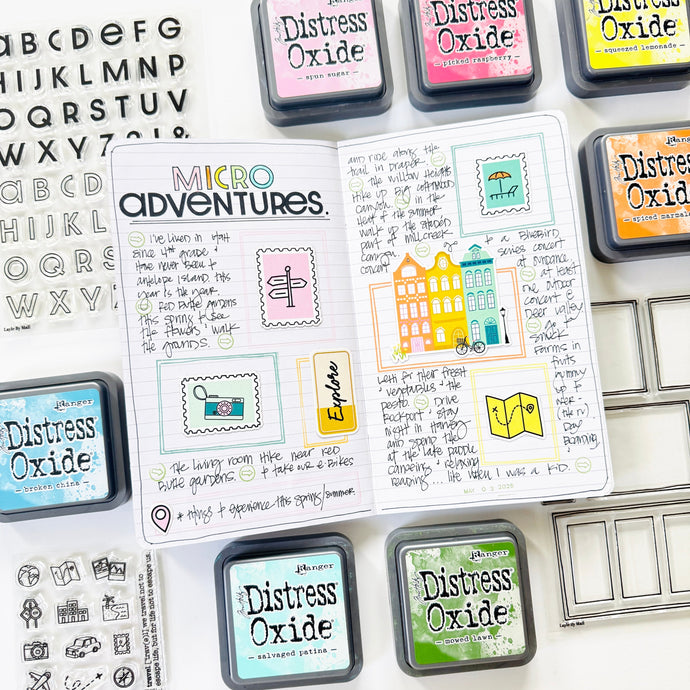 ABCDEFG
HIJKLMNP
OQRSTUV
WXYZ?!&
ABCDEFG
Layle By Mail
Ranger
Distress
Oxide
— spun sugar —
Distress
Oxide
— picked raspberry —
Distress
Oxide
— squeezed lemonade —
Distress
Oxide
— spiced marmalade
MICRO
ADVENTURES.
I've lived in Utah
since 4th grade &
have never been to
antelope Island. This
year is the year.
Red Butte gardens
this spring to see
the flowers & walk
the grounds.
Explore
The living room hike near Red
Butte gardens. + take our e-Bikes
* things to experience this spring/summer
and ride along the
trail in Draper.
The Willow Heights
Hike up Big Cottonwood
Canyon in the
heat of the summer.
walk up the shaded
part of millcreek
canyon
go to a Bluebird
concert series concert
at Sundance
at least
one outdoor
concert @
Deer Valley
go to
Farms in
fruits
yummy
up to
Day
Boarding
for their fresh
vegetables & the
pesto. Drive
Rockport & stay
night in
and spend the
at the lake paddle
canoeing & relaxing
reading... like when I was a kid.
MAY 03 2026
Ranger
Distress
Oxide
— broken china —
Ranger
Distress
Oxide
— salvaged patina —
Ranger
Distress
Oxide
— mowed lawn —
Layle By Mail
travel [trav(ə)l] we travel not to
escape life, but for life not to escape us.